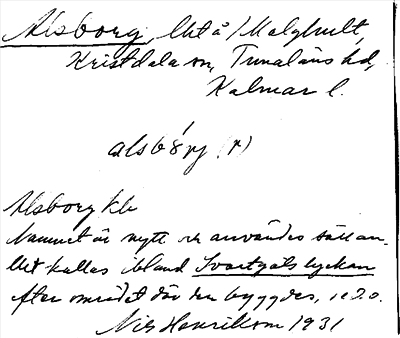 Alsborg, lht å / Malghult,
Kristdala sn, Tunaläns hd,
Kalmar l.
alsbǒrj (r)
Alsborg kb
Namnet är nytt och användes sällan.
Lht kallas ibland Svartgölslyckan
efter området där den byggdes,
Nils Henrikson 1931